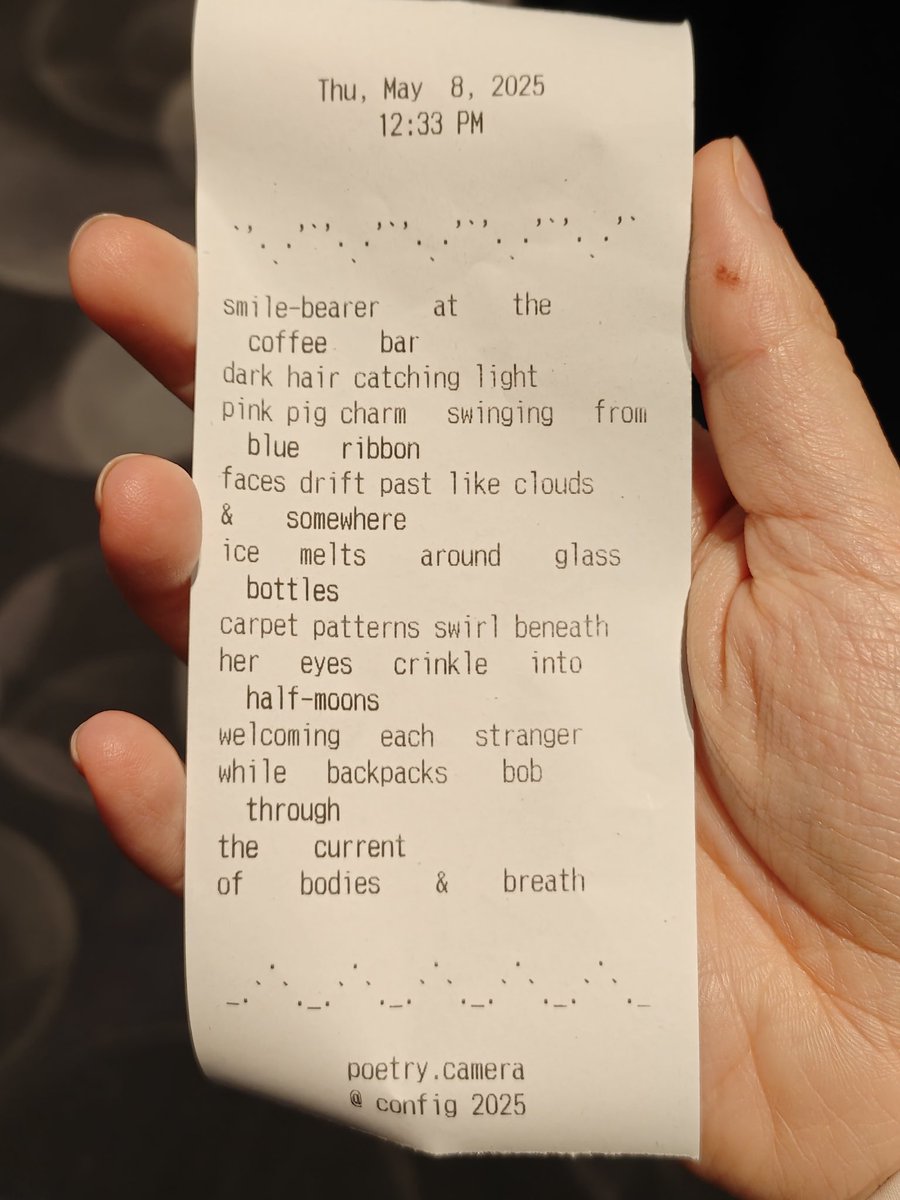 Thu, May 8, 2025
12:33 PM
smile-bearer at the
coffee bar
dark hair catching light
pink pig charm swinging from
blue ribbon
faces drift past like clouds
& somewhere
ice melts around glass
bottles
carpet patterns swirl beneath
her eyes crinkle into
half-moons
welcoming each stranger
while backpacks bob
through
the current
of bodies & breath
poetry.camera
@ config 2025